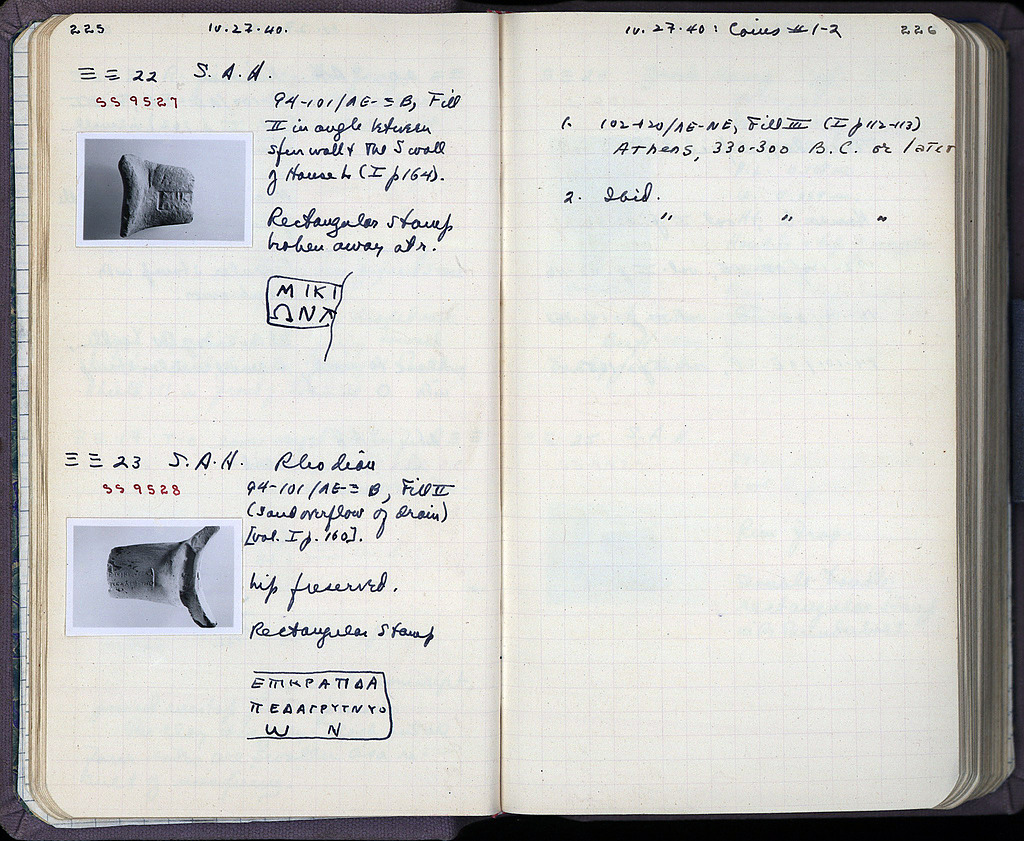 225 IV.27.40.
ΞΞ 22 S.A.H.
SS 9527
94-101/ΛE-ΞB, Fill
II in angle between
spur wall & the S wall
of House L (I p 164).
Rectangular stamp
broken away at r.
ΜΙΚΙ
ΩΝ
ΞΞ 23 S.A.H. Rhodian
SS 9528
94-101/ΛE-ΞB, Fill II
(Sand overflow of drain)
[vol. I p. 160].
Lip preserved.
Rectangular Stamp
ΠΕΔΑΓΡΥΤΝΥΟ
ω Ν
IV.27.40: Coins #1-2 226
1. 102-120/ΛE-NE, Fill III (I p 112-113)
Athens, 330-300 B.C. or later
2. Ibid.
" " "